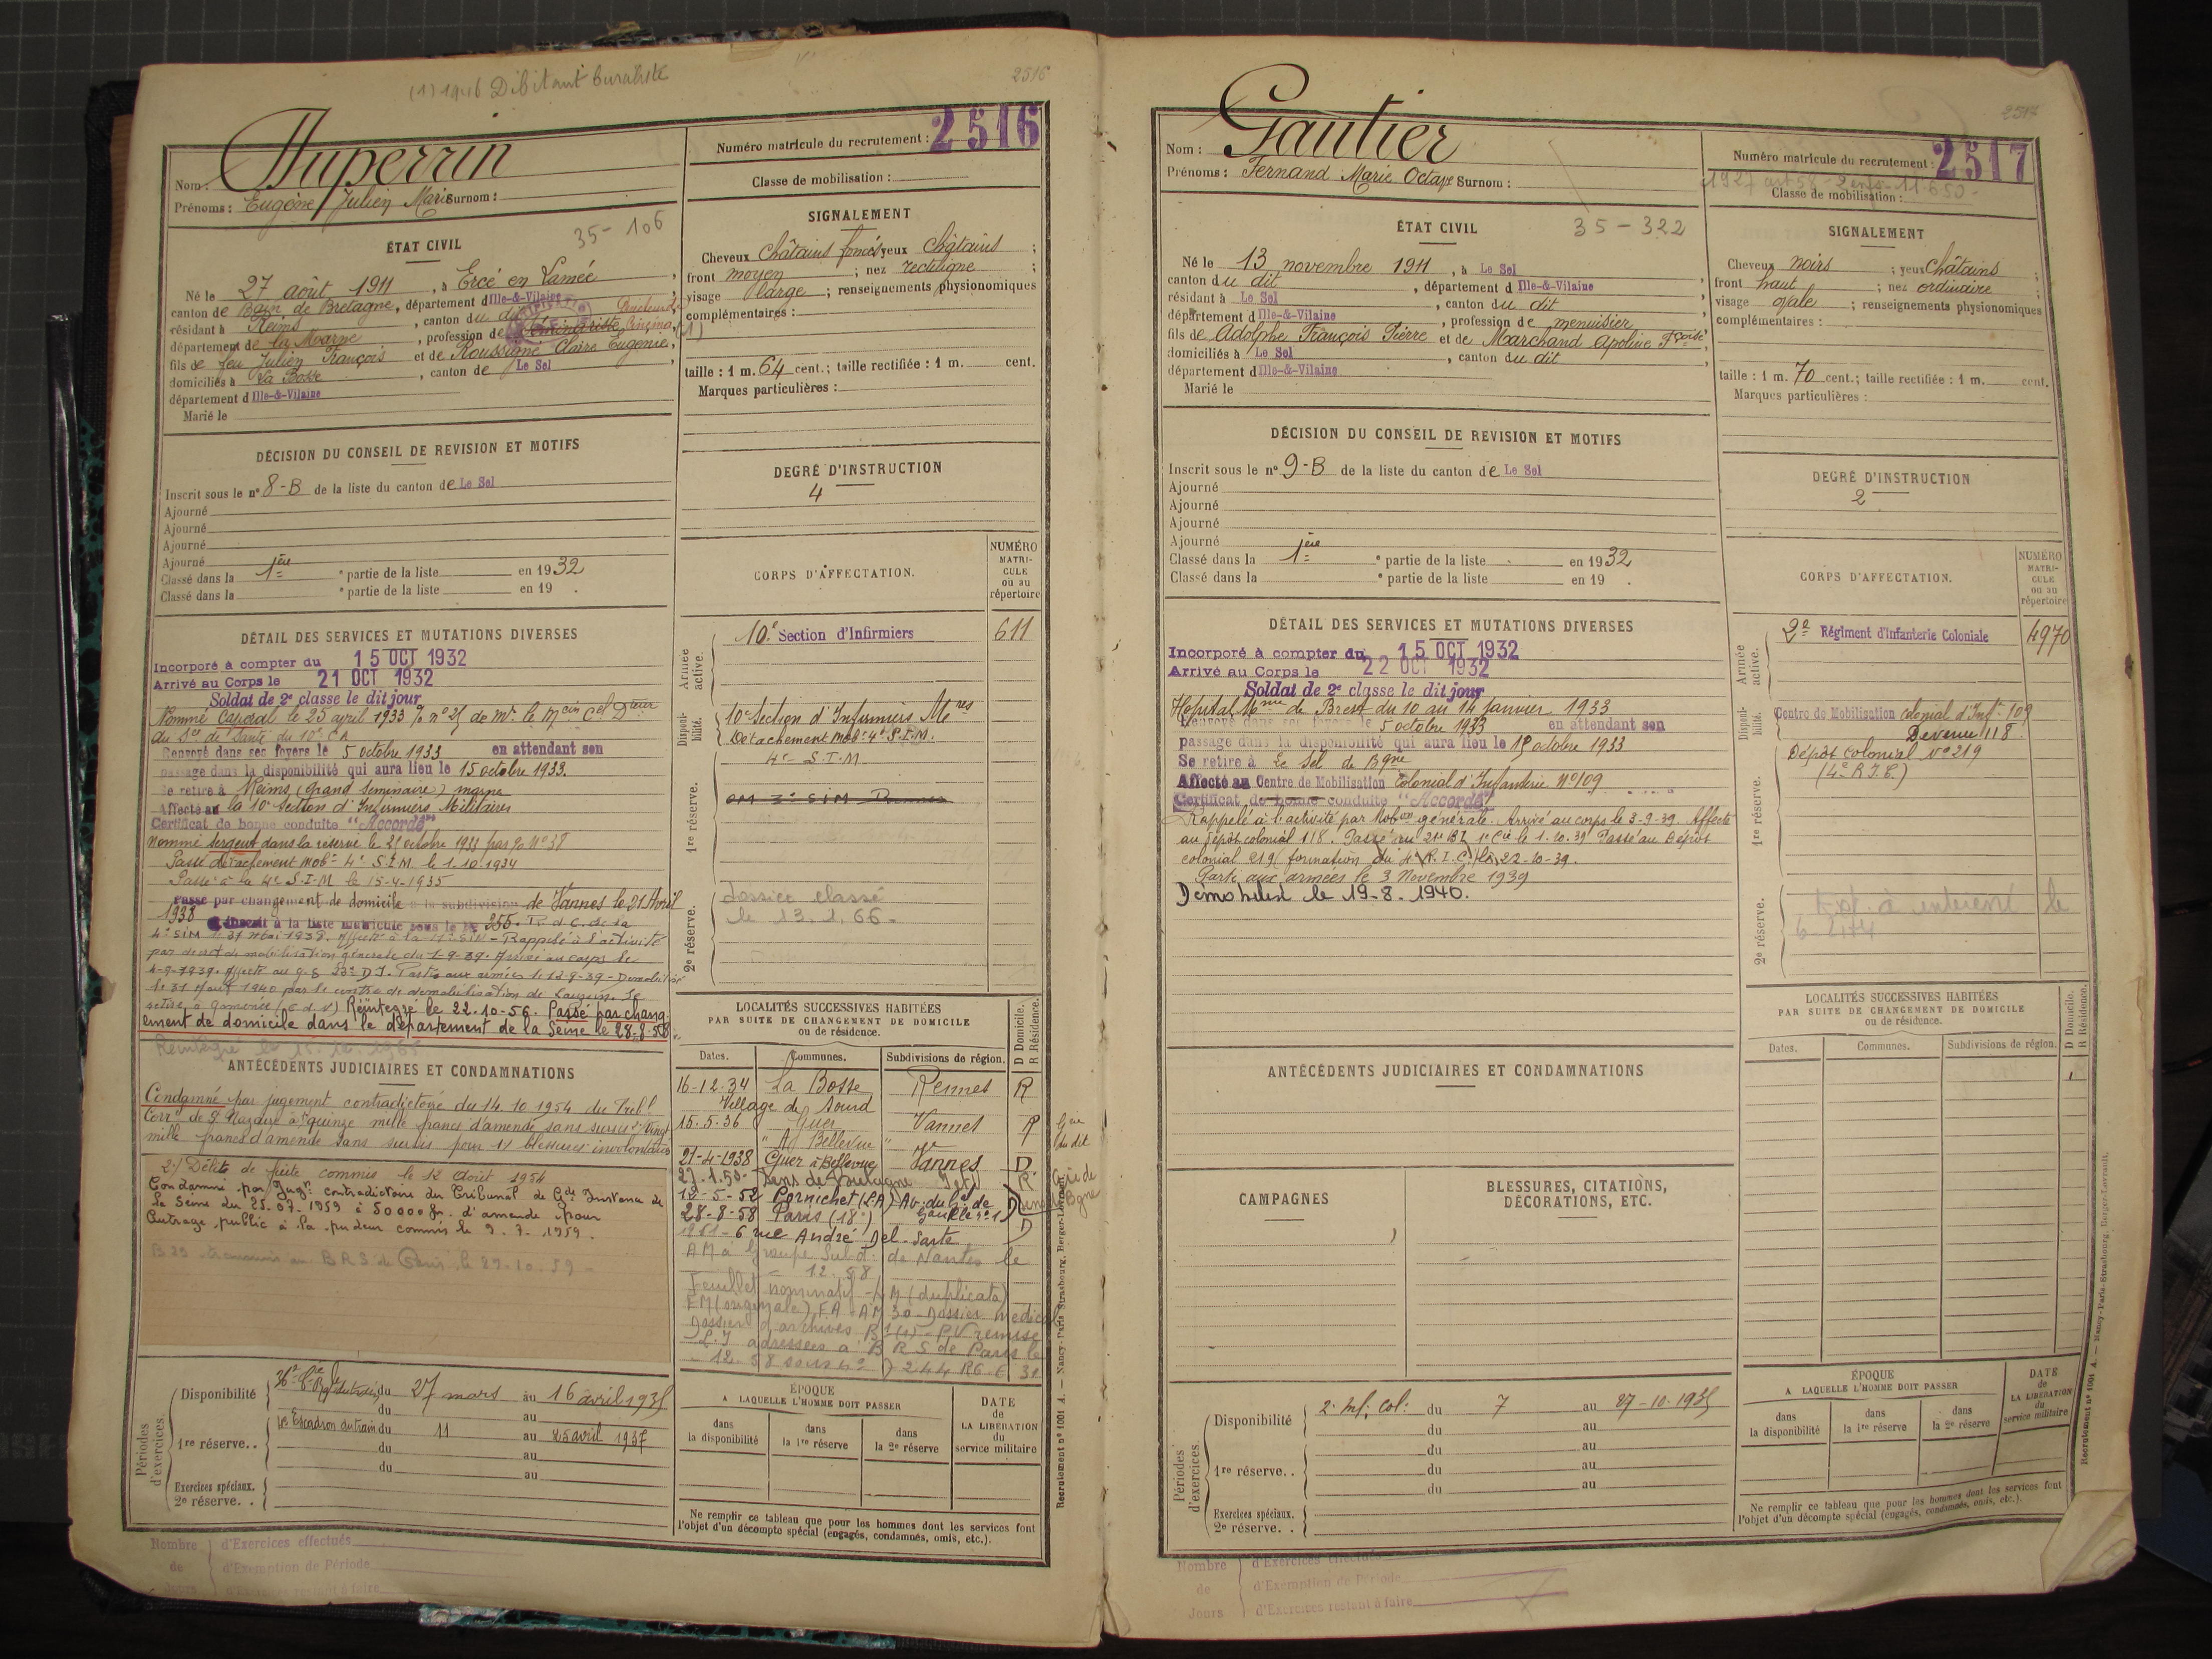 (1) 1946 Débitant buraliste
2516
Nom : Duperrin
Prénoms : Eugène Julien Marie Surnom :
Numéro matricule du recrutement : 2516
Classe de mobilisation :
ÉTAT CIVIL
35-106
Né le 27 août 1911, à Ercé en Lamée,
canton de Bain de Bretagne, département d Ille-&-Vilaine
résidant à Reims, canton du dit
département de la Marne, profession de Séminariste (1)
fils de feu Julien François et de Roussigné Claire Eugénie,
domiciliés à La Bosse, canton de Le Sel
département d Ille-&-Vilaine
Marié le
SIGNALEMENT
Cheveux Châtains foncés yeux Châtains ;
front moyen ; nez rectiligne ;
visage large ; renseignements physionomiques
complémentaires :
taille : 1 m. 64 cent.; taille rectifiée : 1 m. cent.
Marques particulières :
DÉCISION DU CONSEIL DE REVISION ET MOTIFS
Inscrit sous le n° 8-B de la liste du canton de Le Sel
Ajourné
Ajourné
Ajourné
Ajourné
Classé dans la 1ère ° partie de la liste en 1932
Classé dans la ° partie de la liste en 19 .
DEGRÉ D'INSTRUCTION
4
CORPS D'AFFECTATION.
NUMÉRO MATRICULE ou au répertoire
Armée active.
10e Section d'Infirmiers 611
Disponibilité.
10e Section d'Infirmiers Mres
Détachement Mobre 4e S.I.M.
4e S.I.M.
1re réserve.
2e réserve.
dossier classé
le 13.1.66-
DÉTAIL DES SERVICES ET MUTATIONS DIVERSES
Incorporé à compter du 15 OCT 1932
Arrivé au Corps le 21 OCT 1932
Soldat de 2e classe le dit jour
Nommé Caporal le 25 avril 1933 % n° 25 de Mr le Mcin Cel Dteur
du Sce de Santé du 10e CA
Renvoyé dans ses foyers le 5 octobre 1933 en attendant son
passage dans la disponibilité qui aura lieu le 15 octobre 1933.
Se retire à Reims (Grand Séminaire) Marne
Affecté au la 10e Section d'Infirmiers Militaires
Certificat de bonne conduite "Accordé"
Nommé Sergent dans la réserve le 21 octobre 1933 par % N° 38
Passé détachement Mobre 4e S.I.M. le 1.10.1934
Passé à la 4e S.I.M le 15-4-1935
Passé par changement de domicile à la subdivision de Vannes le 21 Avril
1938 inscrit à la liste matricule sous le n° 255. R.d.C. de la
4e SIM le 31 mai 1938. Affecté à la 11e SIM - Rappelé à l'activité
par décret de mobilisation générale du 1-9-39. Arrivé au corps le
4-9-1939. Affecté au G.S 53e D.I. Parti aux armées le 12-9-39 - Démobilisé
le 31 Août 1940 par le centre de démobilisation de Lauzun. Se
retire à Gomenée (C d N) Réintégré le 22.10-56. Passé par chang-
ement de domicile dans le département de la Seine le 28-8-58
ANTÉCÉDENTS JUDICIAIRES ET CONDAMNATIONS
Condamné par jugement contradictoire du 14.10.1954 du Trbl
Correl de St Nazaire à quinze mille francs d'amende sans sursis, vingt
mille francs d'amende sans sursis pour 1°/ blessures involontaires
2°/ Délit de fuite commis le 12 Août 1954
Condamné par Jugt contradictoire du Tribunal de Gde Instance de
la Seine du 25.07.1959 à 50000 fr. d'amende pour
Outrage public à la pudeur commis le 9.7.1959.
B29 transmis au B.R.S de Paris le 27-10-59 -
LOCALITÉS SUCCESSIVES HABITÉES
PAR SUITE DE CHANGEMENT DE DOMICILE
ou de résidence.
D Domicile. R Résidence.
Dates. Communes. Subdivisions de région.
16-12-34 La Bosse Rennes R
Village du Sourd
15-5-36 Guer Vannes R
" à Bellevue "
21-4-1938 Guer à Bellevue Vannes D
27.1.50- Sens de Bretagne I et V R.
12-5-52 Pornichet (LA) Av. du Gal de Gaulle n° 1
28-8-58 Paris (18e) D
6 rue André Del Sarte
AM à Groupe Subd. de Nantes le
12.58
Feuillet nominatif - M (duplicata)
EM (originale), FA - AM 30 - Dossier médical
Dossier d'archives B1 (1) - PV remise
L.I adressées à B R S de Paris le
-12-58 sous n° 7244 RG-E 31
Périodes d'exercices.
Disponibilité du 27 mars au 16 avril 1935
du au
1re réserve. . 4e Escadron du train du 11 au 25 avril 1937
du au
du au
Exercices spéciaux.
2e réserve. .
ÉPOQUE
A LAQUELLE L'HOMME DOIT PASSER
dans la disponibilité
dans la 1re réserve
dans la 2e réserve
DATE de LA LIBÉRATION du service militaire
Ne remplir ce tableau que pour les hommes dont les services font
l'objet d'un décompte spécial (engagés, condamnés, omis, etc.).
Recrutement n° 1001 A. — Nancy-Paris-Strasbourg, Berger-Levrault.
Nombre de Jours
d'Exercices effectués
d'Exemption de Période
d'Exercices restant à faire
2517
Nom : Gautier
Prénoms : Fernand Marie Octave Surnom :
Numéro matricule du recrutement : 2517
1927 art 58 - 2 enfts - 11.650-
Classe de mobilisation :
ÉTAT CIVIL
35-322
Né le 13 novembre 1911, à Le Sel
canton du dit, département d Ille-&-Vilaine
résidant à Le Sel, canton du dit
département d Ille-&-Vilaine, profession de menuisier
fils de Adolphe François Pierre et de Marchand Apoline Fçoise
domiciliés à Le Sel, canton du dit
département d Ille-&-Vilaine
Marié le
SIGNALEMENT
Cheveux noirs ; yeux châtains ;
front haut ; nez ordinaire ;
visage ovale ; renseignements physionomiques
complémentaires :
taille : 1 m. 70 cent.; taille rectifiée : 1 m. cent.
Marques particulières :
DÉCISION DU CONSEIL DE REVISION ET MOTIFS
Inscrit sous le n° 9-B de la liste du canton de Le Sel
Ajourné
Ajourné
Ajourné
Ajourné
Classé dans la 1ère ° partie de la liste en 1932
Classé dans la ° partie de la liste en 19 .
DEGRÉ D'INSTRUCTION
2
CORPS D'AFFECTATION.
NUMÉRO MATRICULE ou au répertoire
Armée active.
2e Régiment d'Infanterie Coloniale 4970
Disponibilité.
Centre de Mobilisation colonial d'Inf. 109
Devenu 118.
Dépôt colonial N° 219
(4e R.I.C.)
1re réserve.
2e réserve.
DÉTAIL DES SERVICES ET MUTATIONS DIVERSES
Incorporé à compter du 15 OCT 1932
Arrivé au Corps le 22 OCT 1932
Soldat de 2e classe le dit jour
Hôpital Mme de Brest du 10 au 14 janvier 1933
Renvoyé dans ses foyers le 5 octobre 1933 en attendant son
passage dans la disponibilité qui aura lieu le 15 octobre 1933
Se retire à Le Sel de Bgne
Affecté au Centre de Mobilisation Colonial d'Infanterie N° 109
Certificat de bonne conduite "Accordé"
Rappelé à l'activité par Mobon générale. Arrivé au corps le 3-9-39. Affecté
au dépôt colonial 118. Passé au 21e BI 1e Cie le 1.10.39 Passé au Dépôt
colonial 219 (formation du 4e R.I.C.) le 22-10-39.
Parti aux armées le 3 Novembre 1939
Démobilisé le 19-8-1940.
ANTÉCÉDENTS JUDICIAIRES ET CONDAMNATIONS
CAMPAGNES
BLESSURES, CITATIONS,
DÉCORATIONS, ETC.
LOCALITÉS SUCCESSIVES HABITÉES
PAR SUITE DE CHANGEMENT DE DOMICILE
ou de résidence.
D Domicile. R Résidence.
Dates. Communes. Subdivisions de région.
Périodes d'exercices.
Disponibilité 2e Inf. Col. du 7 au 27-10-1935
du au
du au
1re réserve. . du au
du au
Exercices spéciaux.
2e réserve. .
ÉPOQUE
A LAQUELLE L'HOMME DOIT PASSER
dans la disponibilité
dans la 1re réserve
dans la 2e réserve
DATE de LA LIBÉRATION du service militaire
Ne remplir ce tableau que pour les hommes dont les services font
l'objet d'un décompte spécial (engagés, condamnés, omis, etc.).
Recrutement n° 1001 A. — Nancy-Paris-Strasbourg, Berger-Levrault.
Nombre de Jours
d'Exercices effectués
d'Exemption de Période
d'Exercices restant à faire